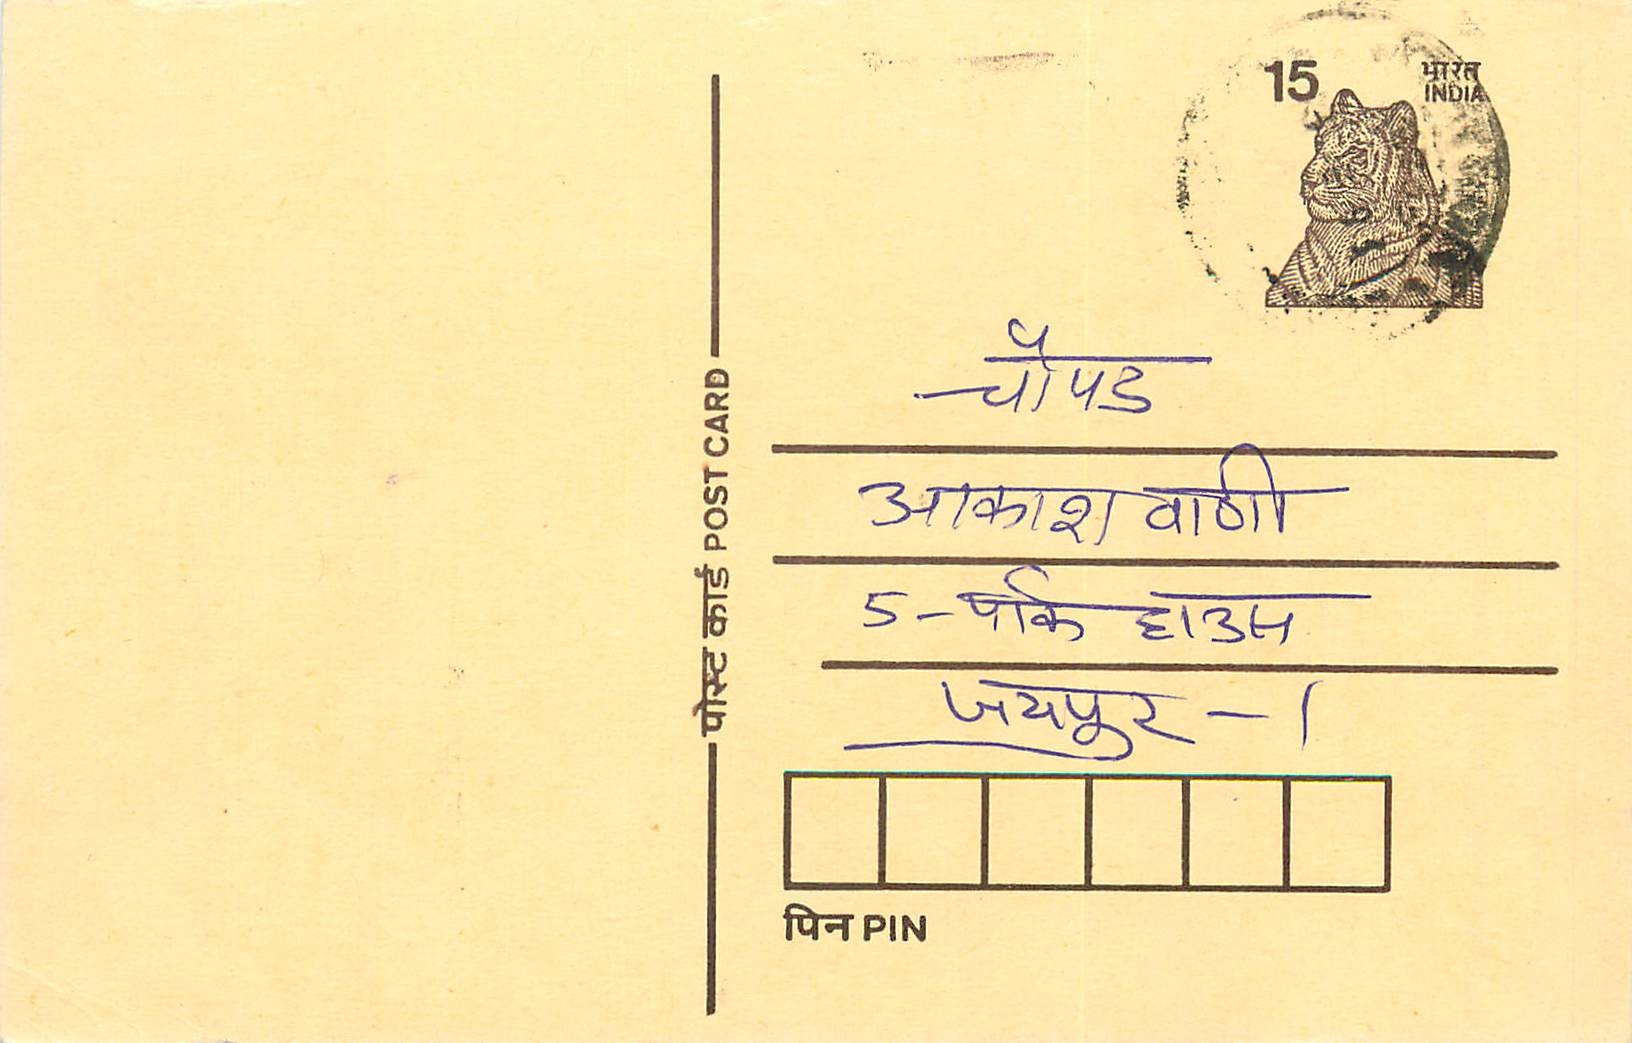 15 भारत
INDIA
चौपड
आकाशवाणी
5-पार्क हाउस
जयपुर-1
पोस्ट कार्ड POST CARD
पिन PIN